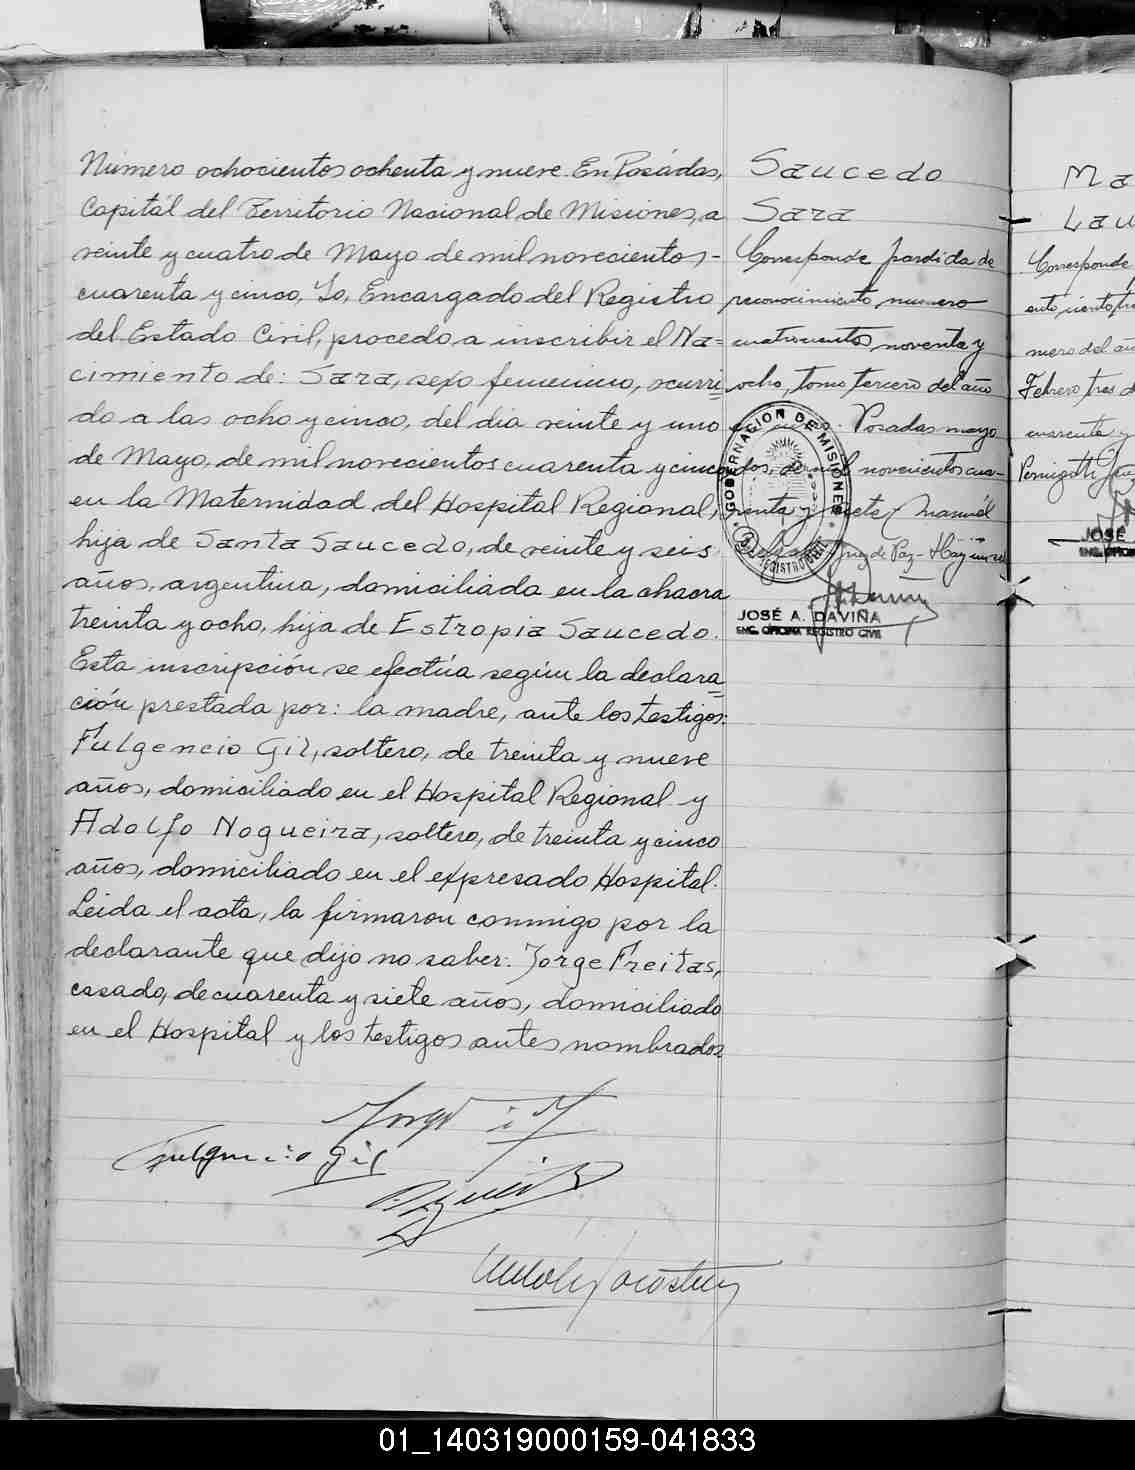 Número ochocientos ochenta y nueve. En Posadas,
Capital del Territorio Nacional de Misiones, a
veinte y cuatro de Mayo de mil novecientos-
cuarenta y cinco, Yo, Encargado del Registro
del Estado Civil, procedo a inscribir el Na=
cimiento de: Sara, sexo femenino, ocurri=
do a las ocho y cinco, del dia veinte y uno
de Mayo, de mil novecientos cuarenta y cinco
en la Maternidad del Hospital Regional,
hija de Santa Saucedo, de veinte y seis
años, argentina, domiciliada en la chacra
treinta y ocho, hija de Estropia Saucedo.
Esta inscripción se efectúa según la declara=
ción prestada por: la madre, ante los testigos:
Fulgencio Gil, soltero, de treinta y nueve
años, domiciliado en el Hospital Regional y
Adolfo Nogueira, soltero, de treinta y cinco
años, domiciliado en el expresado Hospital.
Leida el acta, la firmaron conmigo por la
declarante que dijo no saber: Jorge Freitas,
casado, de cuarenta y siete años, domiciliado
en el Hospital y los testigos antes nombrados
Fulgencio Gil
Saucedo
Sara
Corresponde partida de
reconocimiento numero
cuatrocientos noventa y
ocho, tomo tercero del año
Posadas mayo
dos, de mil novecientos cua-
renta y siete Manuel
Juez de Paz-
GOBERNACION DE MISIONES
REGISTRO CIVIL
JOSÉ A. DAVIÑA
ENC. OFICINA REGISTRO CIVIL
Ma
Lau
Corresponde
mero del añ
Febrero tres d
cuarenta y
JOSÉ
01_140319000159-041833